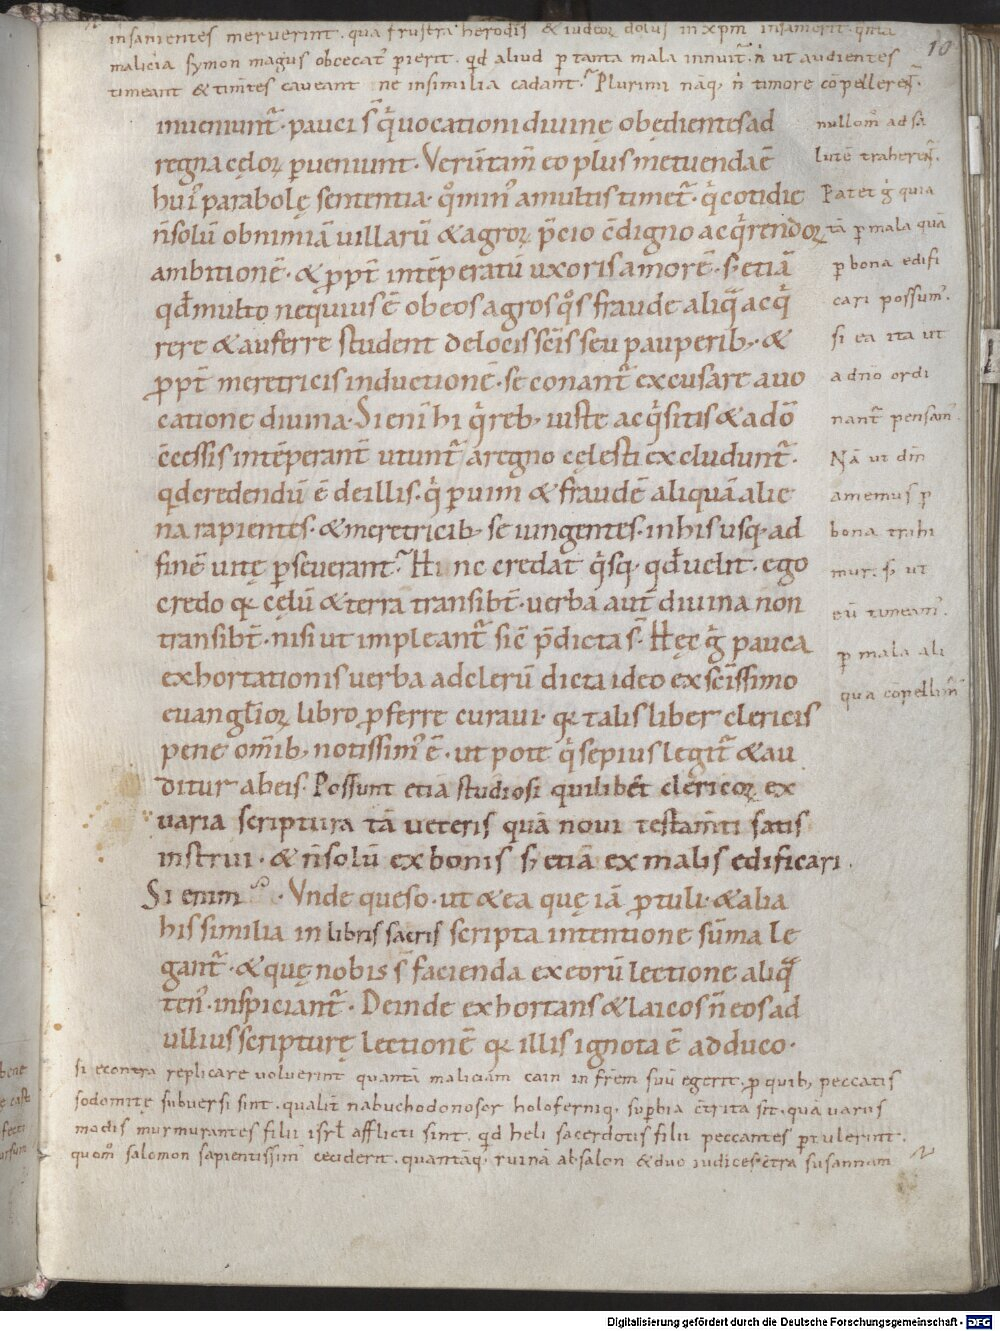 insanientes meruerint. qua frustra herodis & iudeoꝝ dolus in xp̄m insanierit. quāta
malicia symon magus obcecat᷑ perierit. qd aliud ꝑ tanta mala innuit᷑. ń ut audientes
timeant & tim̄tes caveant ne in similia cadant. Plurimi nāq, ń timore cōpellerent᷑.
inueniunt᷑. pauci s̄ q̇ uocationi diuinę obędientes ad
regna cęloꝝ ꝑueniunt. Verūtam̄ eo plus metuenda ē
hui᷒ parabolę sententia. qͦ min᷒ a multis timet᷑. q̇ cotidie
ńsolū ob nimiā uillarū & agroꝝ p̄cio c̄digno acq̇rendoꝝ
ambitionē. & ꝓpt̄ intēperatū uxoris amorē. s; etiā
qd̄ multo nequius ē ob eos agros qͦs fraude aliqͣ acq̇
rere & auferre student de locis sc̄is seu pauperib; &
ꝓpt̄ meretricis inductionē. se conant᷑ excusare a uo
catione diuina. Si eni hi q̇ reb; iuste acq̇sitis & a dō
c̄cessis intēperant̄ utunt᷑ a regno cęlesti excludunt᷑.
qd credendū ē de illis. q̇ ꝑ uim & fraudē aliquā alie
na rapientes. & meretricib; se iungentes. in his usq; ad
finē uitę ꝑseuerant? Hi nc credat q̇sq; qd̄ uelit. ego
credo qꝛ cęlū & terra transibt̄. uerba aut̄ diuina non
transibt̄. nisi ut impleant᷑ sic p̄dicta s̄. Hęc g̊ pauca
exhortationis uerba ad clerū dicta ideo ex sc̄issimo
euangl̄ioꝝ libro ꝓferre curaui. qꝛ talis liber clericis
pene om̄ib; notissim᷒ ē. ut pote q̇ sepius legit᷑ & au
ditur ab eis. Possunt etiā studiosi quilibet clericoꝝ ex
uaria scriptura tā ueteris quā noui testam̄ti satis
instrui. & ńsolū ex bonis s; etiā ex malis edificari.
Si enim. Vnde queso. ut & ea quę iā ꝓtuli. & alia
his similia in libris sacris scripta intentione sūma le
gant᷑. & quę nobis s̄ facienda ex eorū lectione aliqͣ
ten᷒ inspiciant᷑. Deinde exhortans & laicos ń eos ad
ullius scripturę lectionē qꝛ illis ignota ē adduco.
nullom᷒ ad sa
lutē traherent᷑.
Patet g̊ quia
tā ꝑ mala quā
ꝑ bona edifi
cari possum᷒.
si ea ita ut
a dn̄o ordi
nant᷑ pensam᷒.
Nā ut dm̄
amemus ꝑ
bona trahi
mur. s; ut
eū timeam᷒.
ꝑ mala ali
qua cōpellim᷒.
si econtra replicare uoluerint quantā maliciam cain in fr̄em suū egerit. ꝓ quib; peccatis
sodomitę subuersi sint. qualit̄ nabuchodonosor holoferniq; suꝑbia c̄trita sit. quā uariis
modis murmurantes filii isrl̄ afflicti sint. qd heli sacerdotis filii peccantes ꝑtulerint.
quom᷒ salomon sapientissim᷒ ceciderit. quantāq; ruinā absalon & duo iudices c̄tra susannam